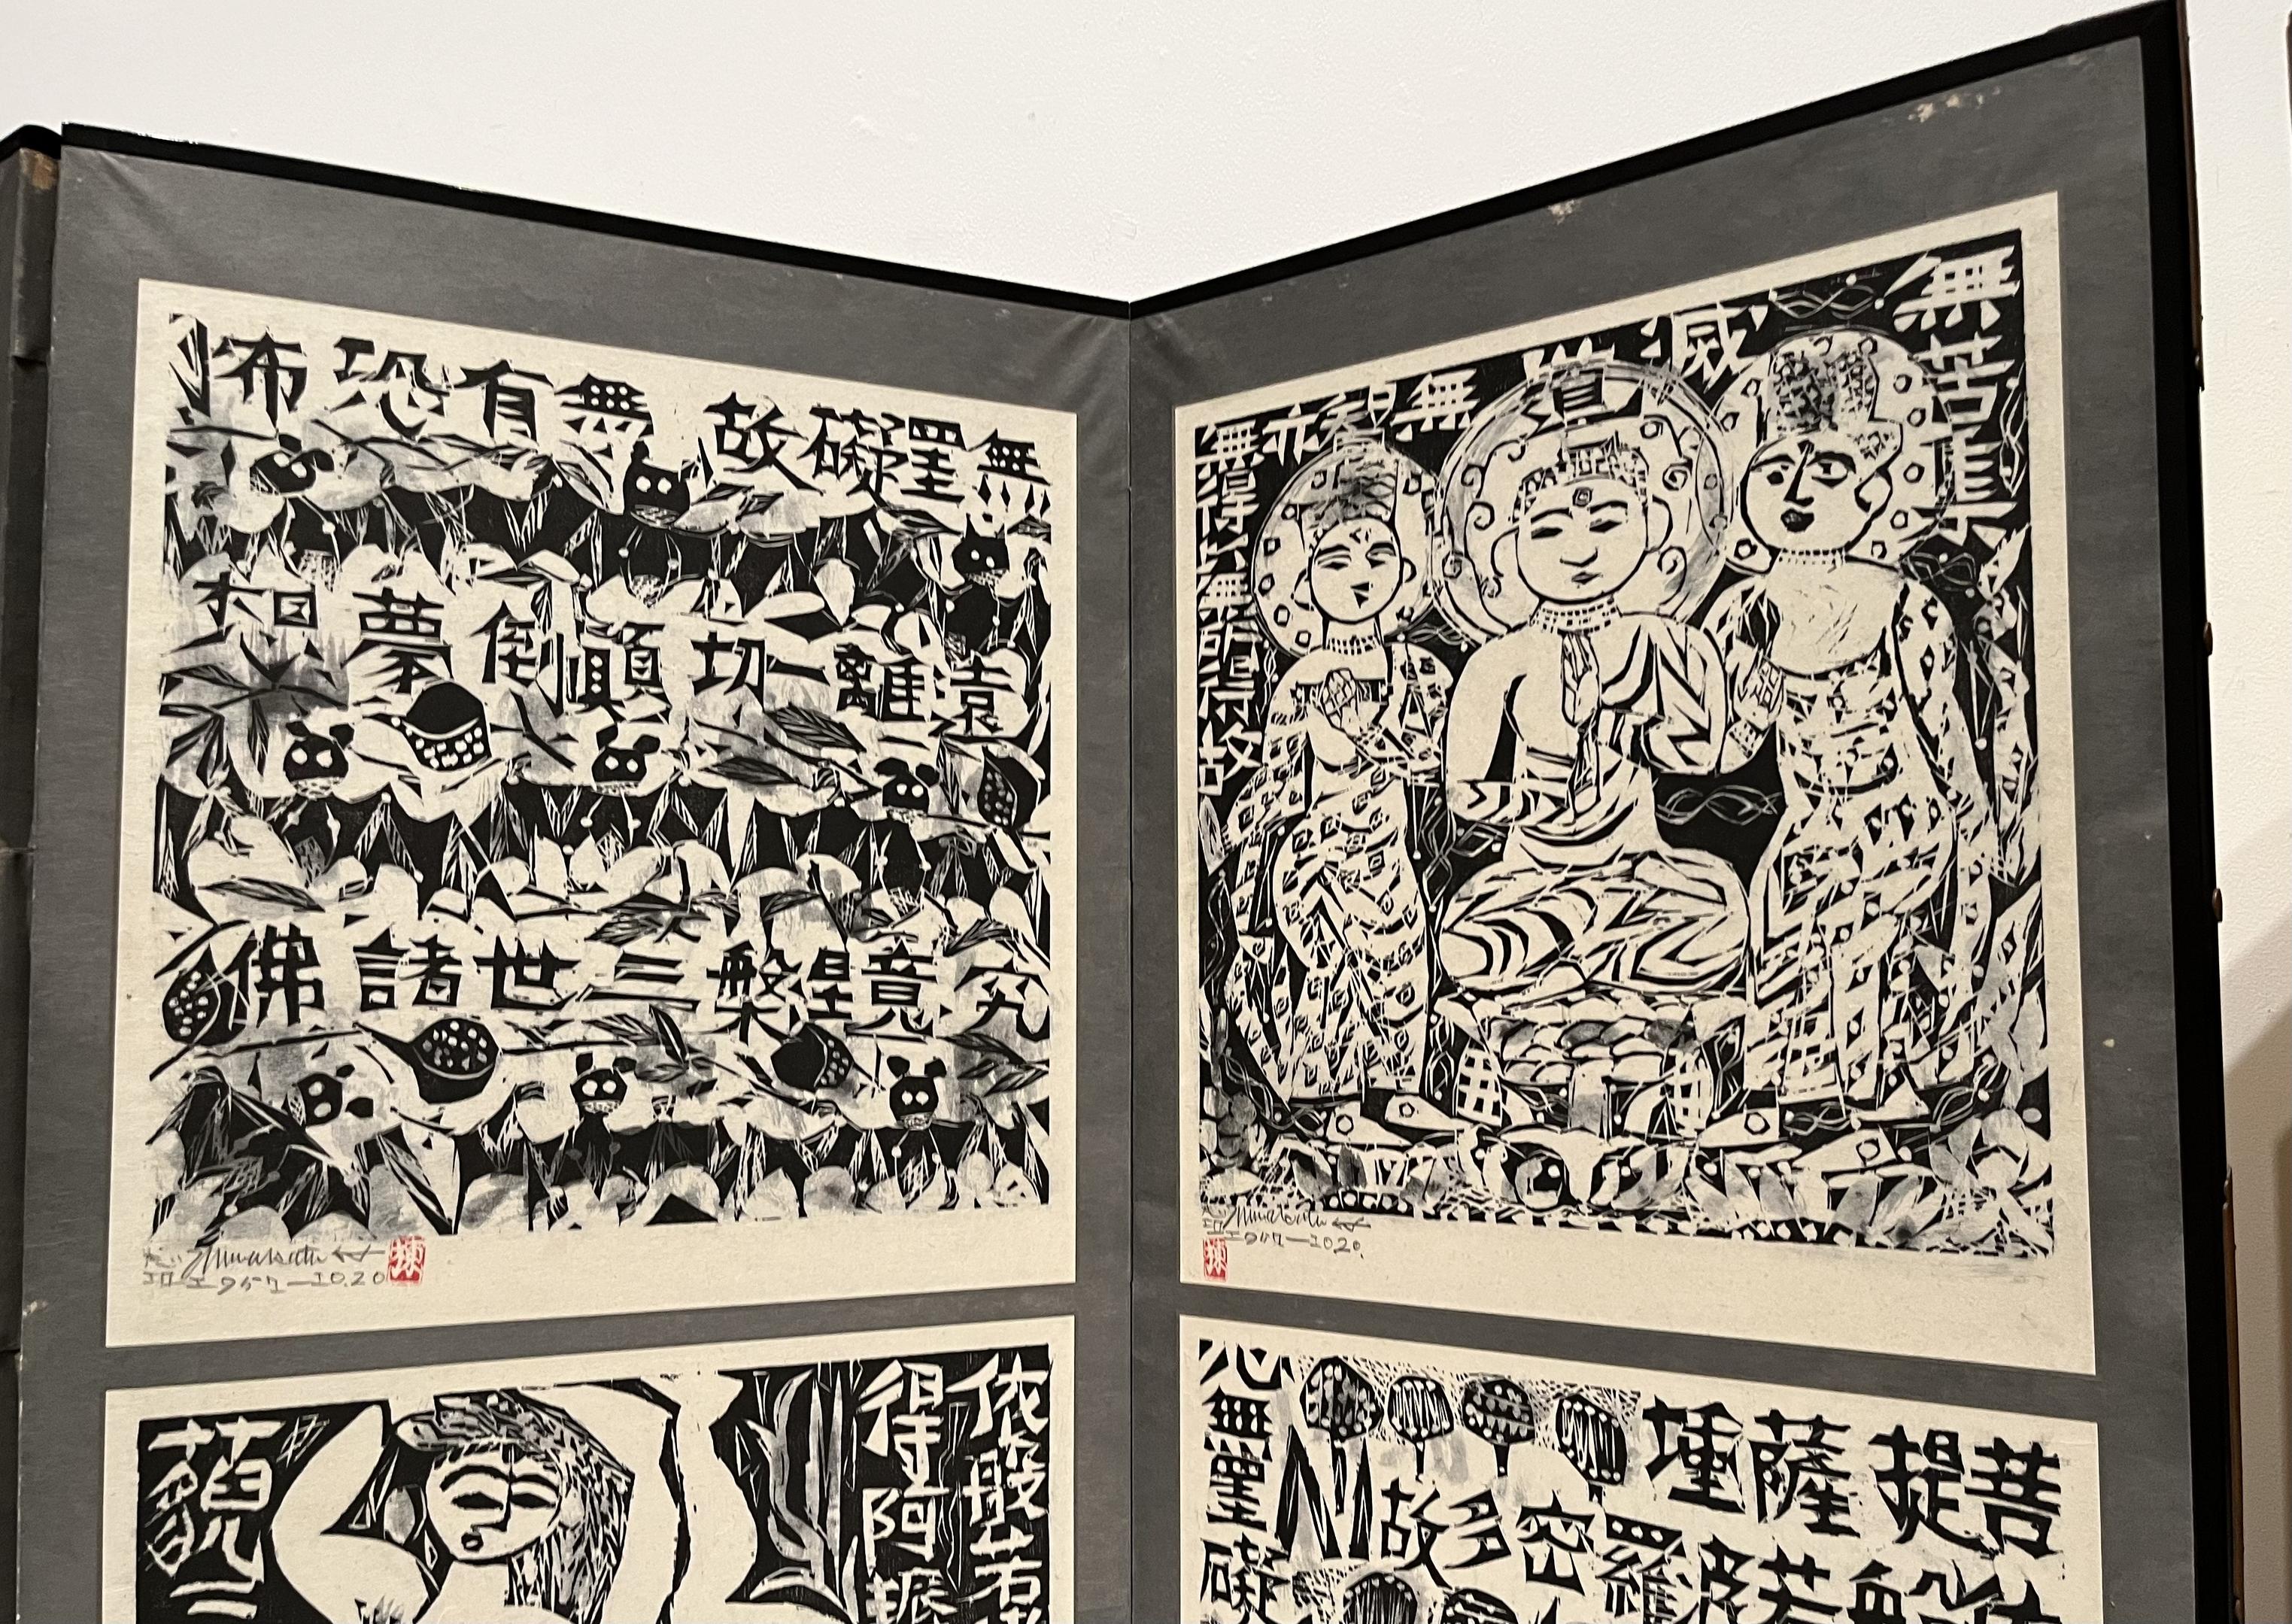 無苦集
滅
道
無智亦無
得以無所得故
菩提薩埵
依般若波羅密多故
心無罣礙
無罣礙故無有恐怖
遠離一切顛倒夢想
究竟涅槃三世諸佛
依般若
得阿耨
藐三
Munakata
1957—10.20
Munakata
1957—1020.